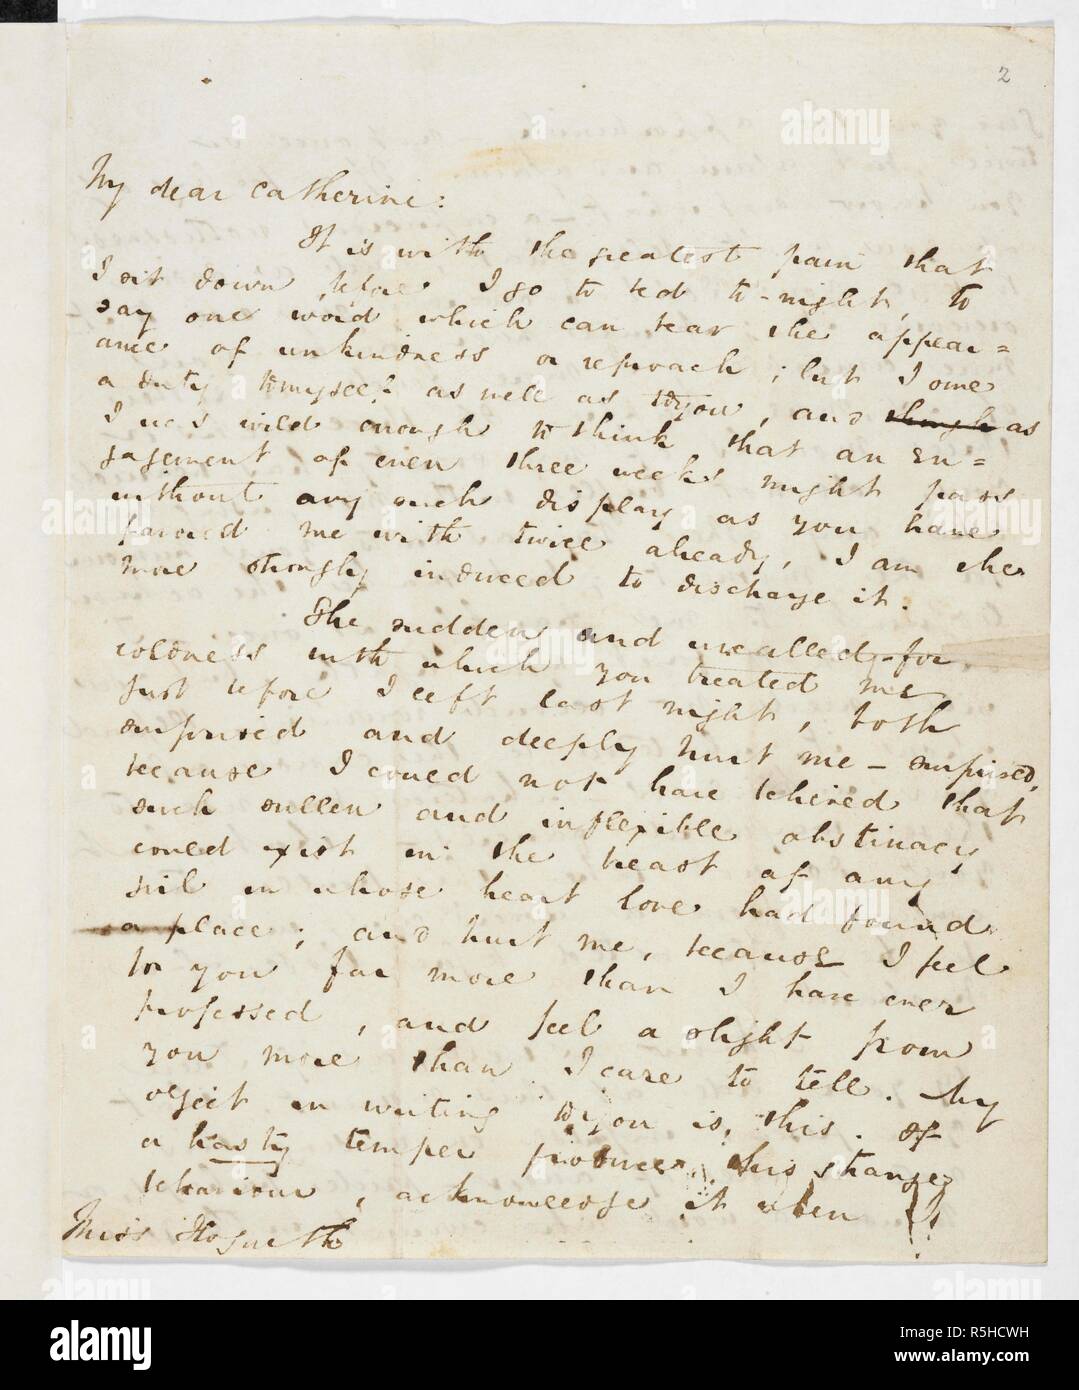 2
My dear Catherine:
It is with the greatest pain that
I sit down, before I go to bed to-night, to
say one word which can bear the appear=
ance of unkindness or reproach; but I owe
a duty to myself as well as to you, and as
I was wild enough to think that an en=
gagement of even three weeks might pass
without any such display as you have
favored me with twice already, I am the
more strongly induced to discharge it.
The sudden and uncalled-for
coldness with which you treated me
just before I left last night, both
surprised and deeply hurt me — surprised,
because I could not have believed that
such sullen and inflexible obstinacy
could exist in the breast of any
girl in whose heart love had found
a place; and hurt me, because I feel
for you far more than I have ever
professed, and feel a slight from
you more than I care to tell. My
object in writing to you is this. If
a hasty temper produces this strange
behaviour, acknowledge it when I
Miss Hogarth
alamy
alamy
Image ID: R5HCWH
www.alamy.com